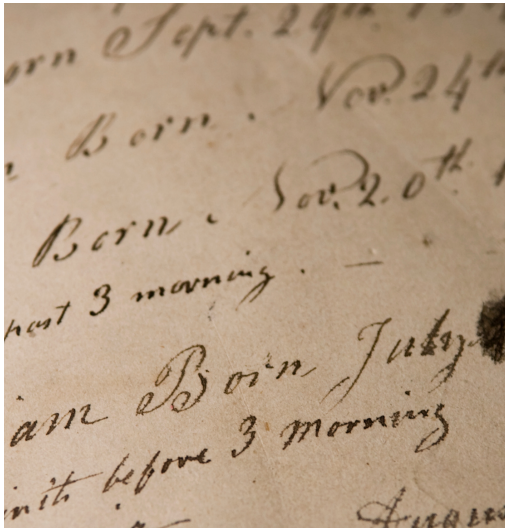 orn Sept. 29th
Born. Nov. 24th
Born. Nov. 20th
past 3 morning. —
am Born July
before 3 morning